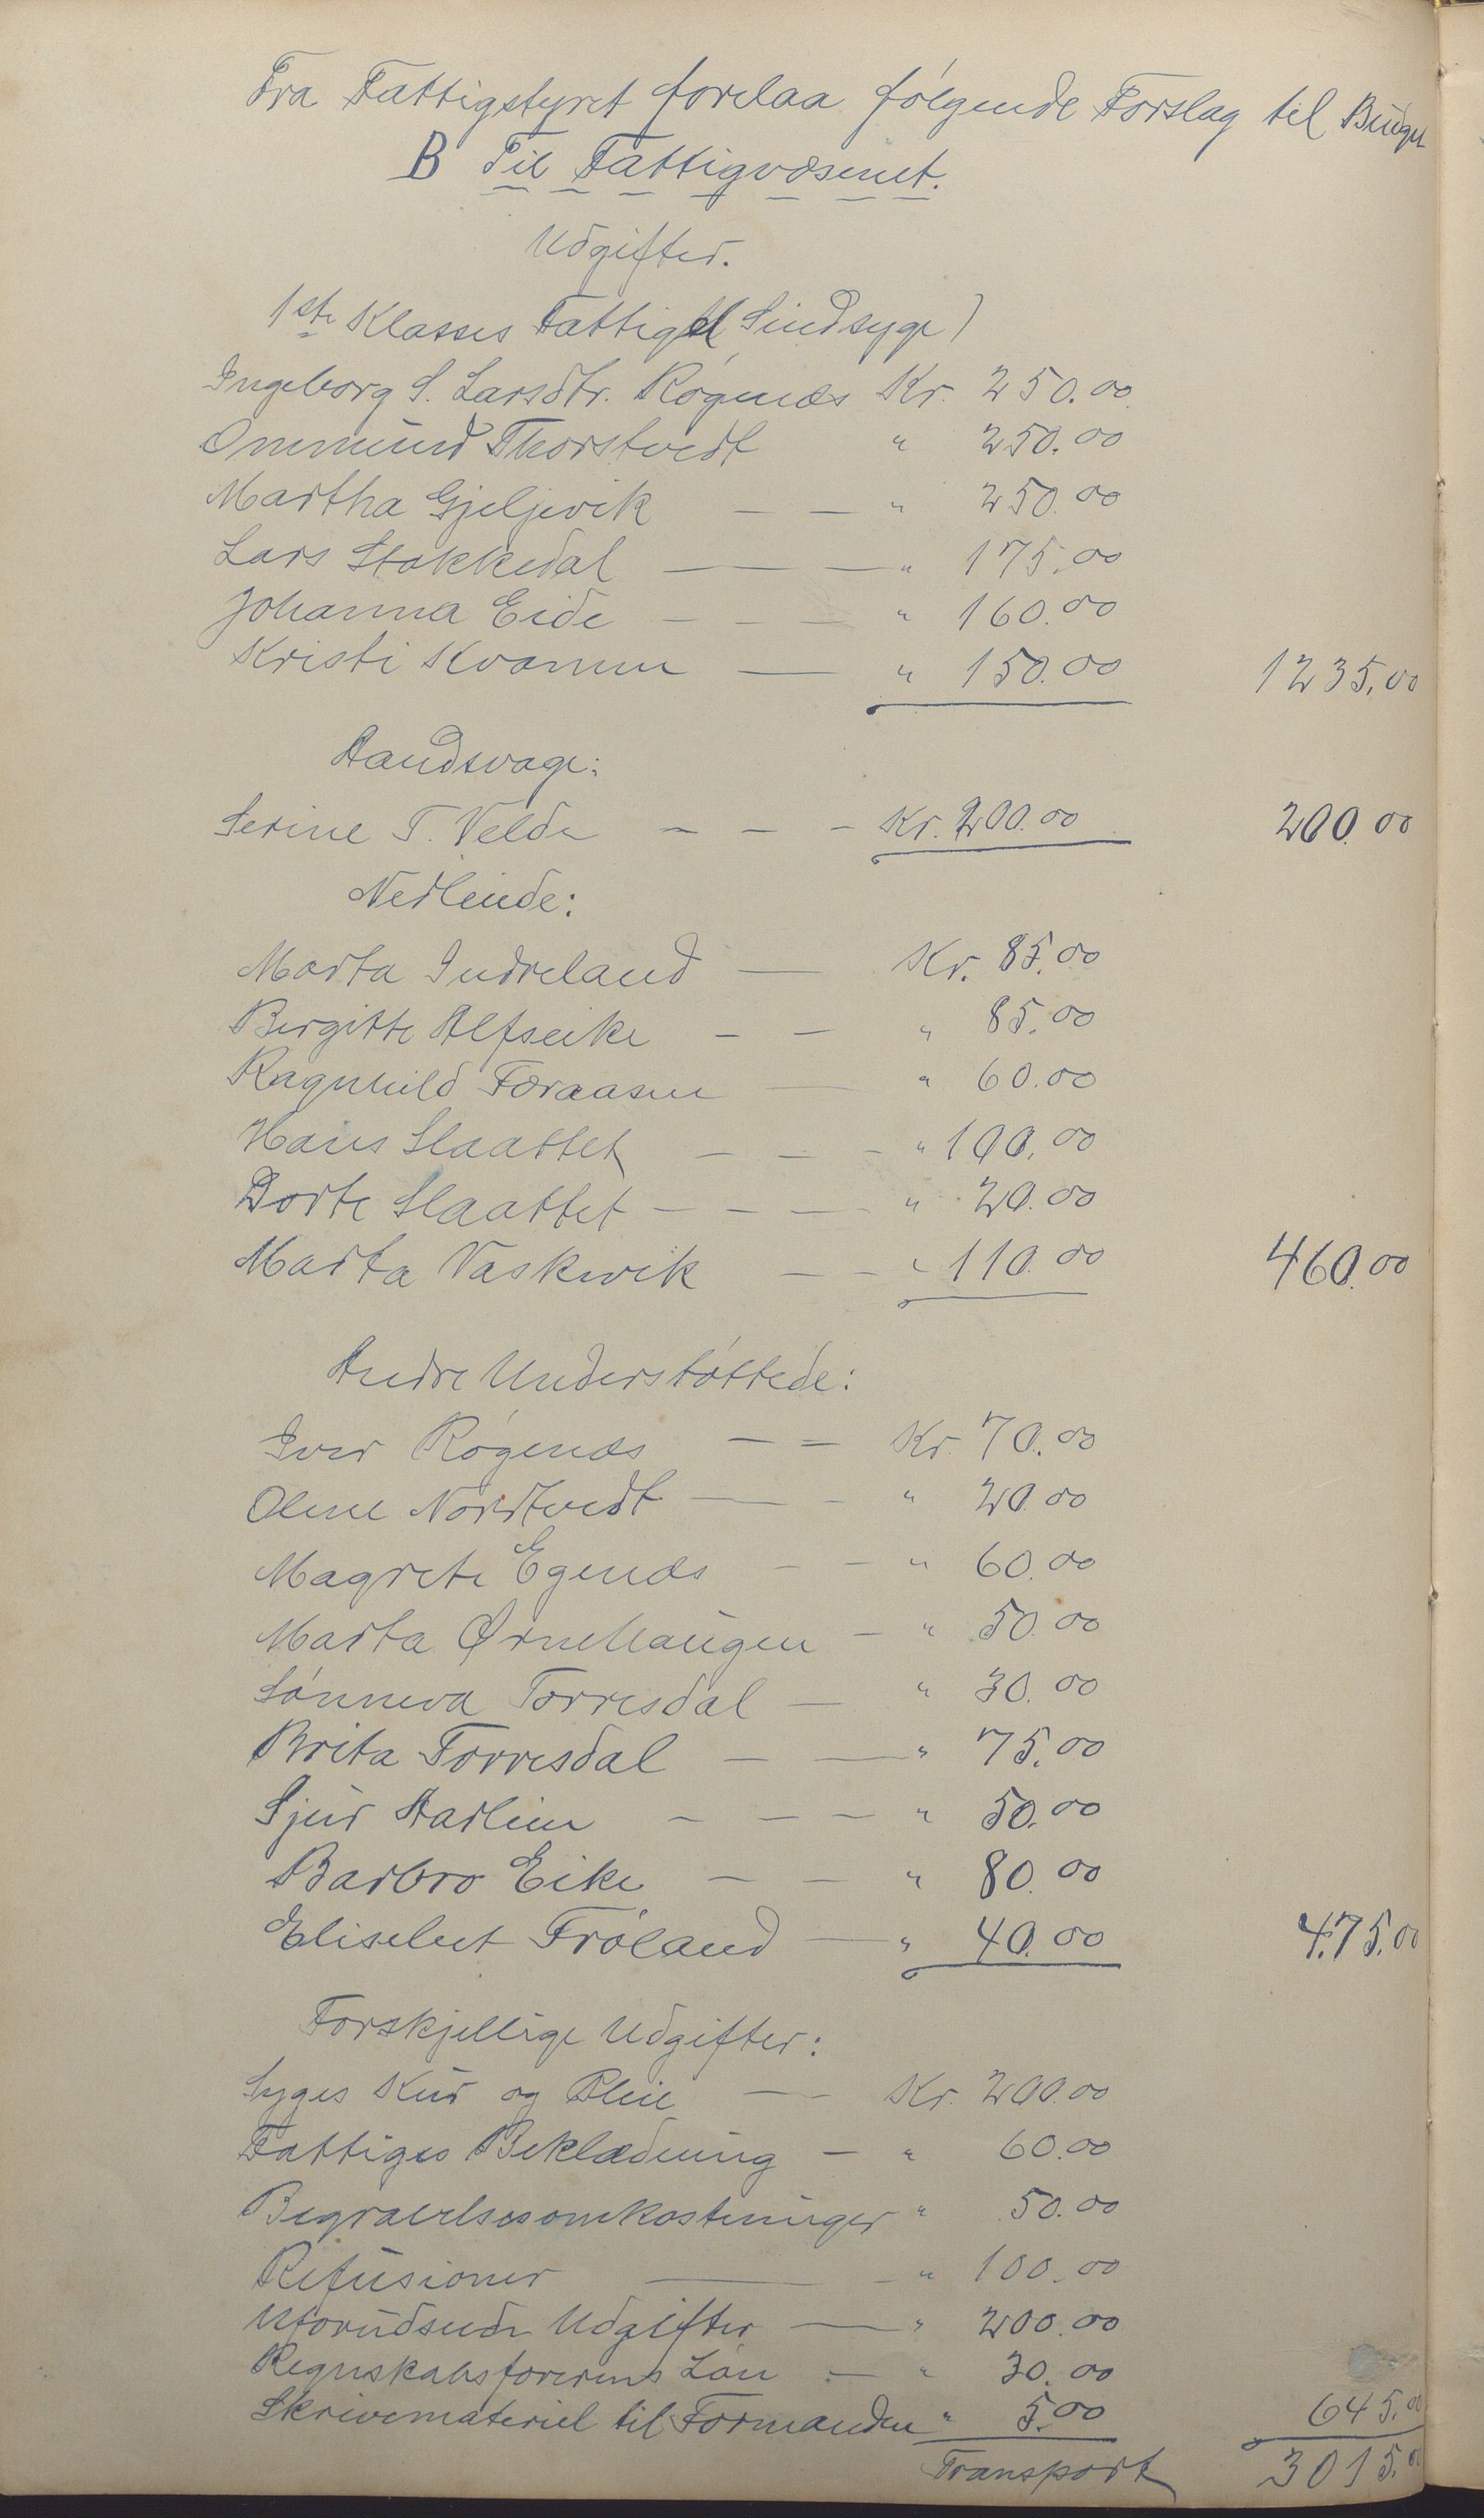 Fra Fattigstyret forelaa følgende Forslag til Budget
B Til Fattigvæsenet.
Udgifter.
1ste Klasses Fattige (Sindsyge)
Ingeborg S. Larsdtr. Røgenæs Kr. 250.00
Ommund Thorstvedt " 250.00
Martha Gjeljevik — — " 250.00
Lars Stokkedal — — — " 175.00
Johanna Eide — — — " 160.00
Kristi Kvamm — " 150.00 1235.00
Aandsvage:
Serine T. Velde — — — Kr. 200.00 200.00
Nedlende:
Marta Indreland — Kr. 85.00
Bergitte Alfseike — — " 85.00
Ragnhild Foraasen — " 60.00
Hans Slaattet — — — " 100.00
Dorte Slaattet — — — " 20.00
Marta Vaskevik — — " 110.00 460.00
Andre Understøttede:
Iver Røgenæs — — Kr. 70.00
Olene Nordtvedt — — " 20.00
Magrete Egenæs — — " 60.00
Marta Ørnehaugen — " 50.00
Sønneva Torresdal — " 30.00
Brita Torresdal — — " 75.00
Sjur Aarlien — — — " 50.00
Barbro Eike — — " 80.00
Elisebet Frøland — " 40.00 475.00
Forskjellige Udgifter:
Syges Kur og Pleie — Kr. 200.00
Fattiges Beklædning — " 60.00
Begravelsesomkostninger " 50.00
Refusioner — — " 100.00
Uforudseede Udgifter — " 200.00
Regnskabsførerens Løn — " 30.00
Skrivemateriel til Formanden " 5.00 645.00
Transport 3015.00